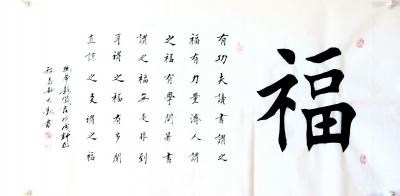 福
有功夫讀書謂之
福有力量濟人謂
之福有學問著書
謂之福無是非到
耳謂之福有多聞
直諒之友謂之福